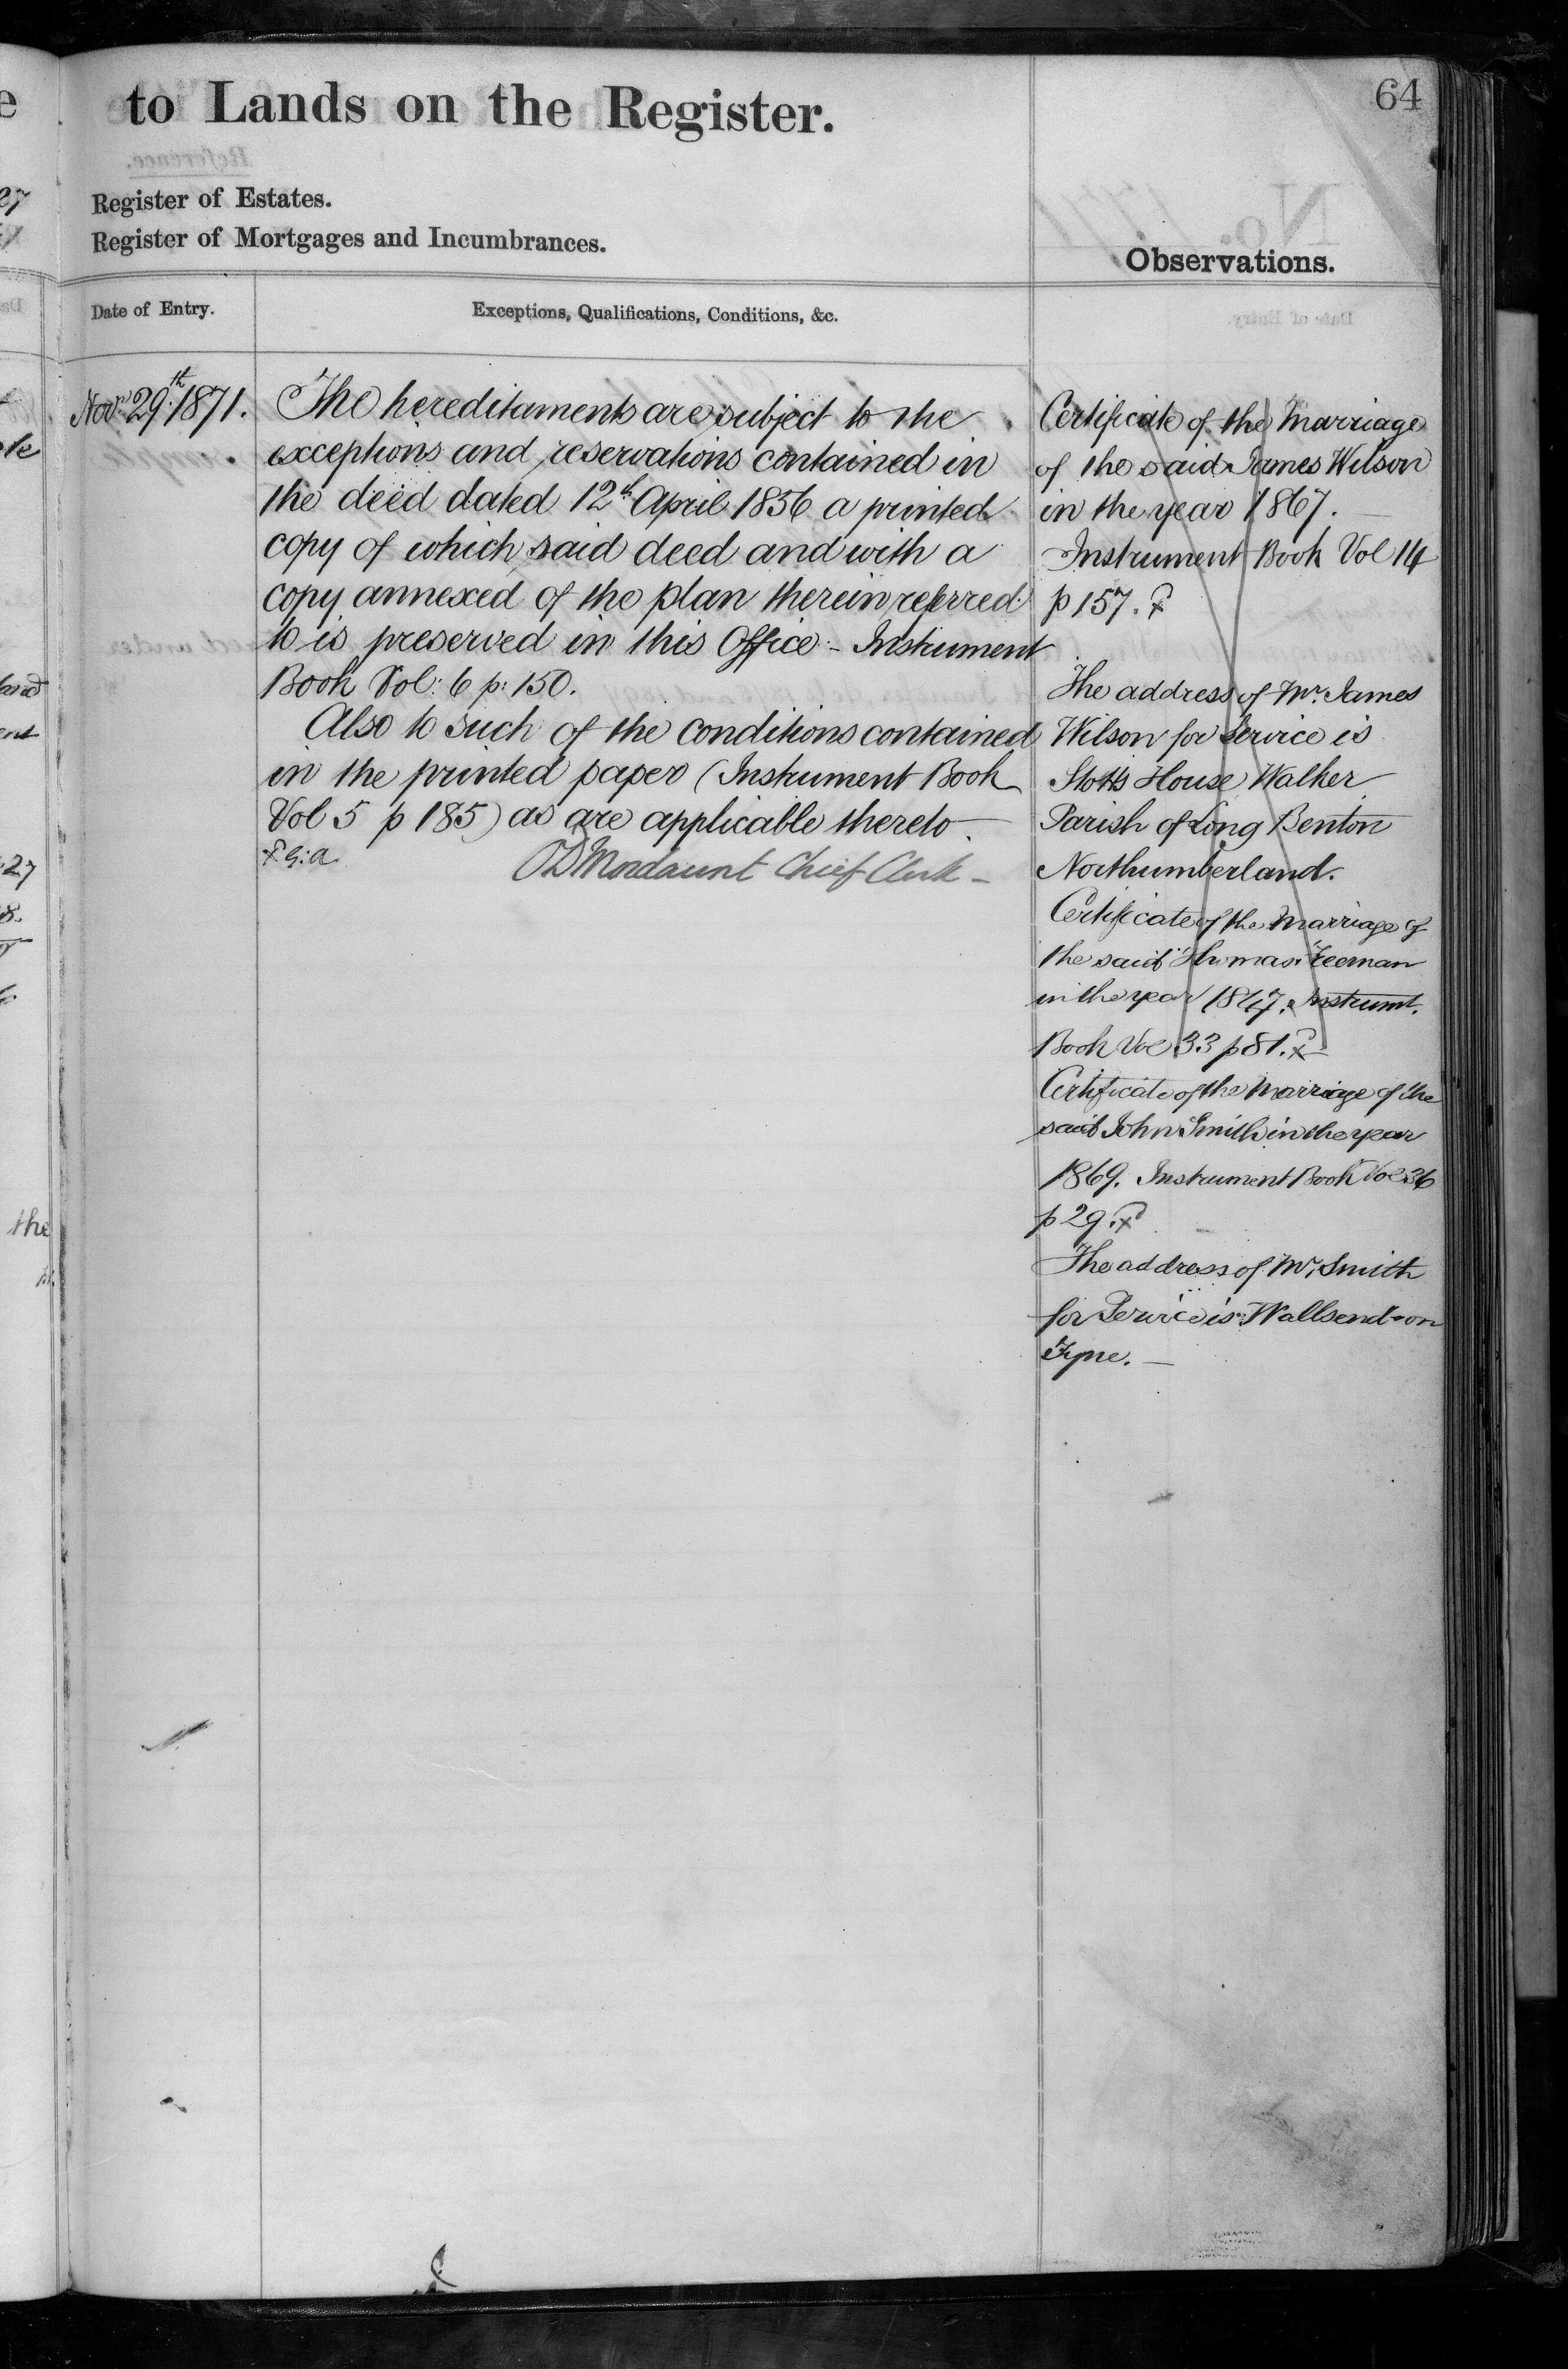 64
to Lands on the Register.
Register of Estates.
Register of Mortgages and Incumbrances.
Observations.
Date of Entry.
Exceptions, Qualifications, Conditions, &c.
Nov. 29th 1871.
The hereditaments are subject to the
exceptions and reservations contained in
the deed dated 12th April 1856 a printed
copy of which said deed and with a
copy annexed of the plan therein referred
to is preserved in this Office - Instrument
Book Vol: 6 p: 150.
Also to such of the conditions contained
in the printed paper (Instrument Book
Vol 5 p 185) as are applicable thereto.
Mordaunt Chief Clerk -
Certificate of the Marriage
of the said James Wilson
in the year 1867.
Instrument Book Vol 14
p 157.
The address of Mr. James
Wilson for Service is
Stotts House Walker
Parish of Long Benton
Northumberland.
Certificate of the Marriage of
the said Thomas
in the year Instrumt.
Book Vol 33 p 81.
Certificate of the Marriage of the
said John Smith in the year
1869. Instrument Book Vol 36
p 29.
The address of Mr. Smith
for Service is Wallsend-on
Tyne. -